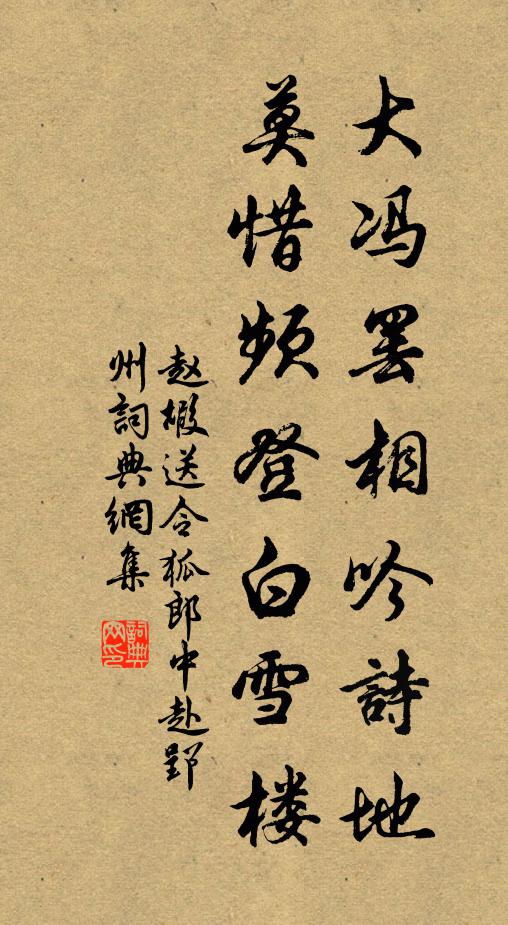 大冯罢相吟詩地
莫惜频登白雪楼
赵嘏送令狐郎中赴郢
州詞典網集
詞典
网印